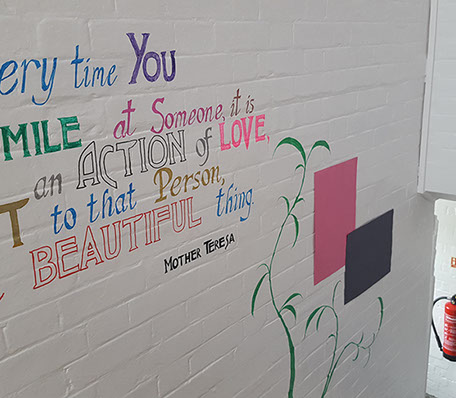 very time YOU
MILE at Someone, it is
an ACTION of LOVE,
to that Person,
BEAUTIFUL thing.
MOTHER TERESA